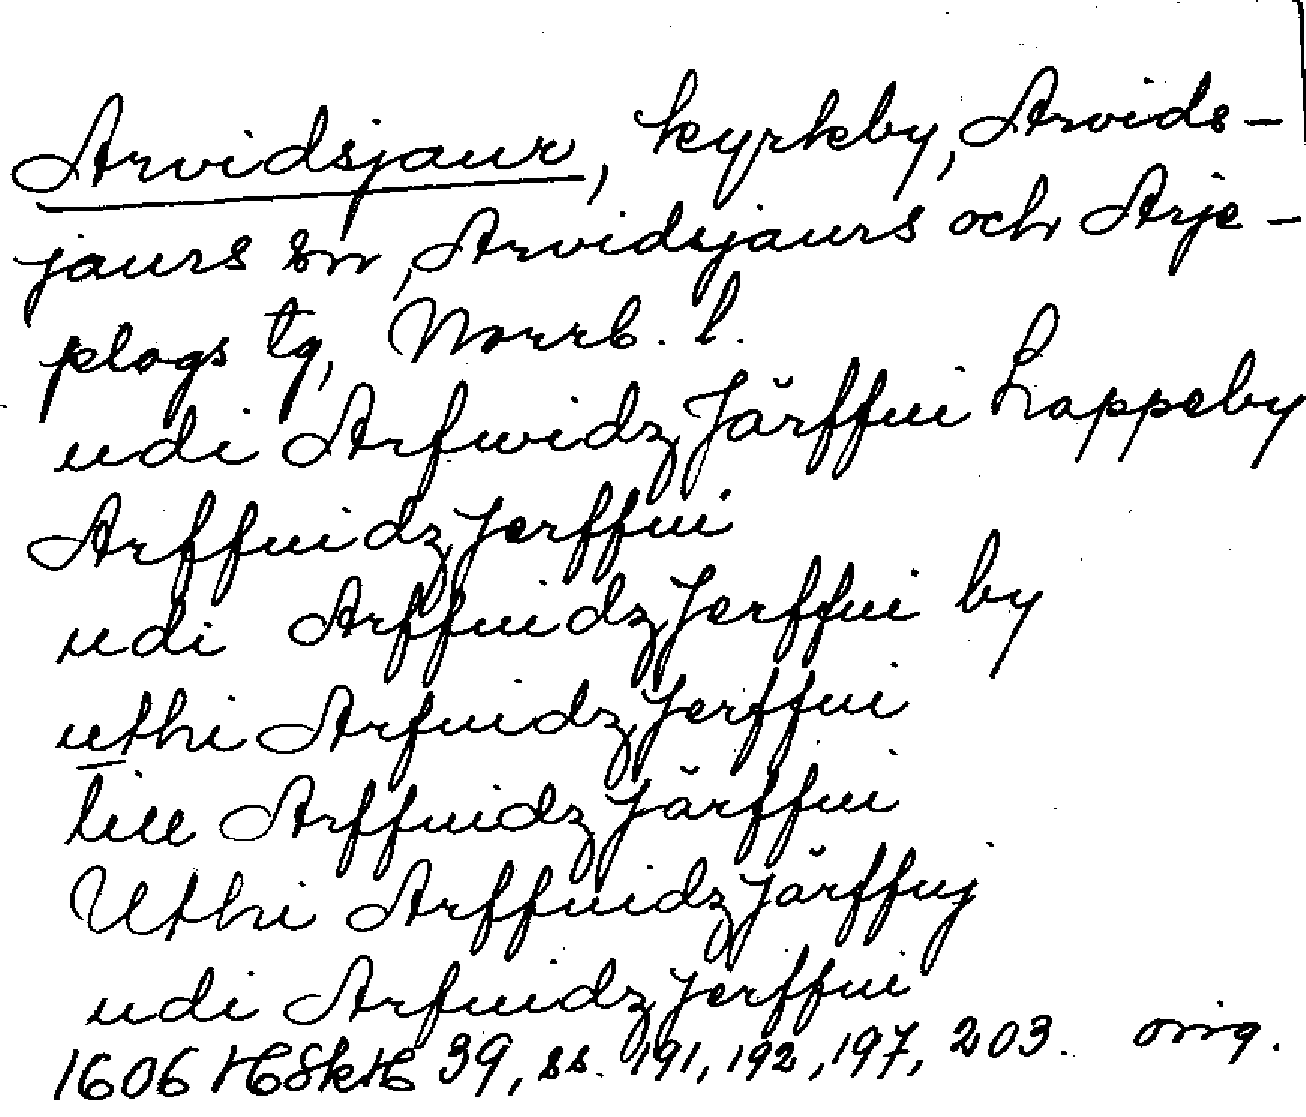 Arvidsjaur, kyrkby, Arvids-
jaurs sn, Arvidsjaurs och Arje-
plogs tg, Norrb. l.
udi Arfwidz Järffui Lappeby
Arffuidz Jerffui
udi Arffuidz Jerffui by
uthi Arfuidz Jerffui
till Arffuidz Järffui
Uthi Arffuidz Järffuj
udi Arfuidz Jerffui
1606 HSkH 39, ss. 191, 192, 197, 203. orig.